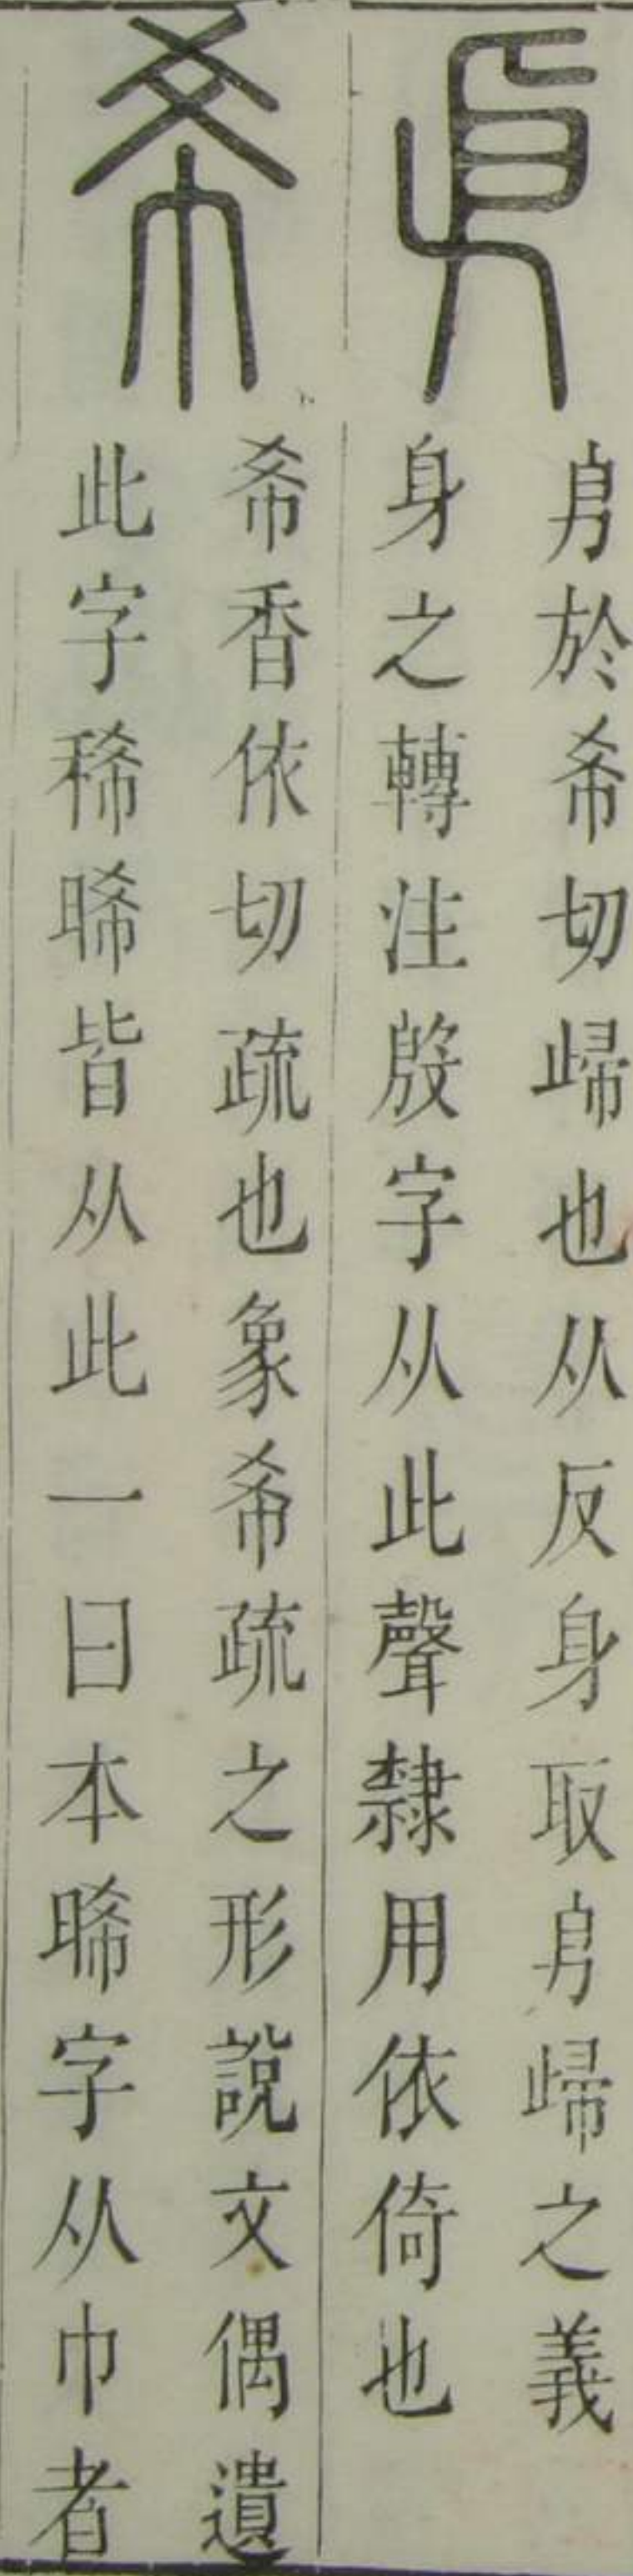 㐆
㐆於希切歸也从反身取㐆歸之義
身之轉注殷字从此聲隸用依倚也
希
希香依切疏也象希疏之形說文偶遺
此字稀晞皆从此一曰本晞字从巾者